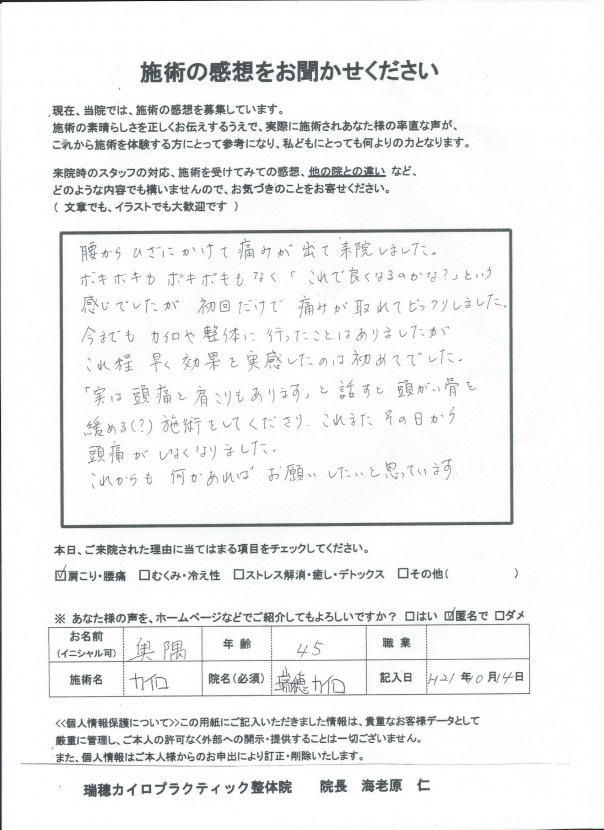 施術の感想をお聞かせください
現在、当院では、施術の感想を募集しています。
施術の素晴らしさを正しくお伝えするうえで、実際に施術されあなた様の率直な声が、
これから施術を体験する方にとって参考になり、私どもにとっても何よりの力となります。
来院時のスタッフの対応、施術を受けてみての感想、他の院との違い など、
どのような内容でも構いませんので、お気づきのことをお寄せください。
( 文章でも、イラストでも大歓迎です )
腰から ひざにかけて痛みが出て来院しました。
ボキボキも ポキポキもなく「これで良くなるのかな?」という
感じでしたが 初回だけで 痛みが取れてビックリしました。
今までも カイロや整体に行ったことはありましたが
これ程 早く効果を実感したのは初めてでした。
「実は頭痛と肩こりもあります」と話すと頭がい骨を
緩める(?)施術をしてくださり、これまたその日から
頭痛がしなくなりました。
これからも 何かあれば お願いしたいと思っています。
本日、ご来院された理由に当てはまる項目をチェックしてください。
☑肩こり・腰痛 □むくみ・冷え性 □ストレス解消・癒し・デトックス □その他( )
※ あなた様の声を、ホームページなどでご紹介してもよろしいですか? □はい ☑匿名で □ダメ
お名前 (イニシャル可) 奥隅 年齢 45 職業
施術名 カイロ 院名(必須) 瑞穂カイロ 記入日 H21 年10 月14日
<<個人情報保護について>>この用紙にご記入いただきました情報は、貴重なお客様データとして
厳重に管理し、ご本人の許可なく外部への開示・提供することは一切ございません。
また、個人情報はご本人様からのお申出により訂正・削除いたします。
瑞穂カイロプラクティック整体院 院長 海老原 仁